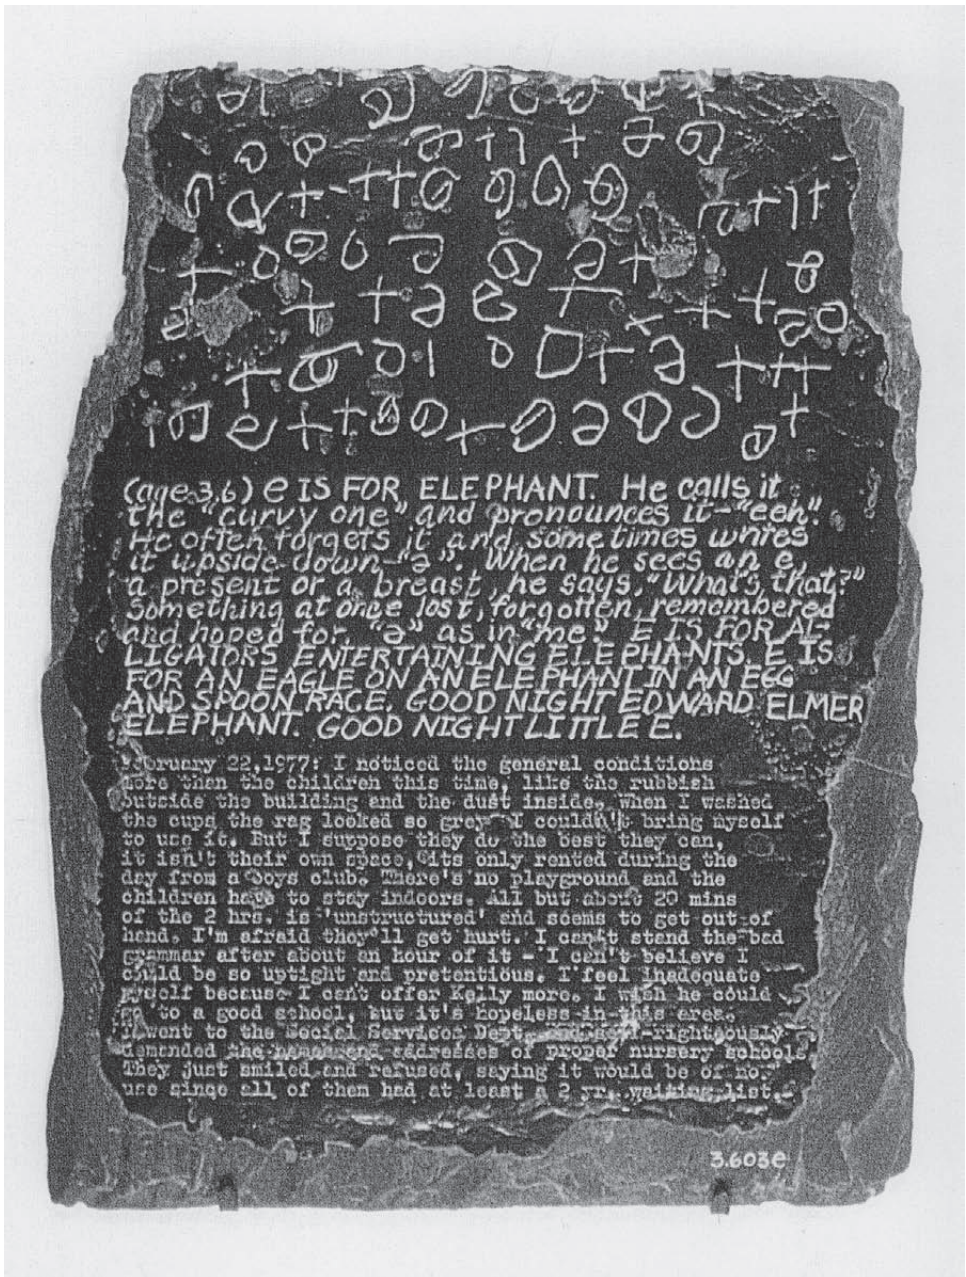 (age 3.6) e IS FOR ELEPHANT. He calls it
the "curvy one" and pronounces it-"eeh".
He often forgets it and sometimes writes
it upside-down-"ə". When he sees an e,
a present or a breast, he says, "What's that?"
Something at once lost, forgotten, remembered
and hoped for. "ə" as in "me." E IS FOR AL-
LIGATORS ENTERTAINING ELEPHANTS. E IS
FOR AN EAGLE ON AN ELEPHANT IN AN EGG
AND SPOON RACE. GOOD NIGHT EDWARD ELMER
ELEPHANT. GOOD NIGHT LITTLE E.
February 22,1977: I noticed the general conditions
more than the children this time, like the rubbish
outside the building and the dust inside. when I washed
the cups the rag looked so grey I couldn't bring myself
to use it. But I suppose they do the best they can,
it isn't their own space, its only rented during the
day from a boys club. There's no playground and the
children have to stay indoors. All but about 20 mins
of the 2 hrs. is 'unstructured' and seems to get out of
hand. I'm afraid they'll get hurt. I can't stand the bad
grammar after about an hour of it - I can't believe I
could be so uptight and pretentious. I feel inadequate
myself because I cant offer Kelly more. I wish he could
go to a good school, but it's hopeless in this area.
I went to the Social Services Dept. and self-righteously
demanded the names and addresses of proper nursery schools.
They just smiled and refused, saying it would be of no
use since all of them had at least a 2 yr. waiting list.
3.603e